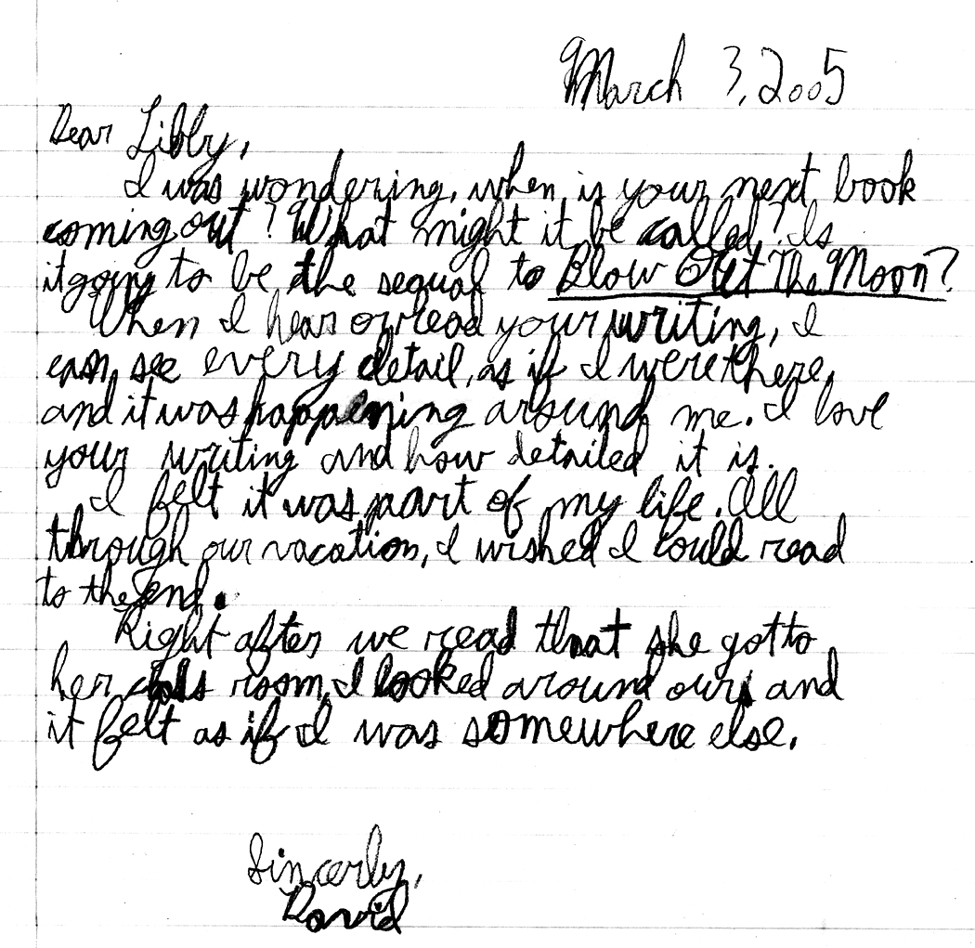 March 3, 2005
Dear Libby,
I was wondering, when is your next book
coming out? What might it be called? Is
it going to be the sequal to Blow Out The Moon?
When I hear or read your writing, I
can see every detail, as if I were there,
and it was happening around me. I love
your writing and how detailed it is.
I felt it was part of my life. All
through our vacation, I wished I could read
to the end.
Right after we read that she got to
her room, I looked around ours and
it felt as if I was somewhere else.
Sincerly,
David